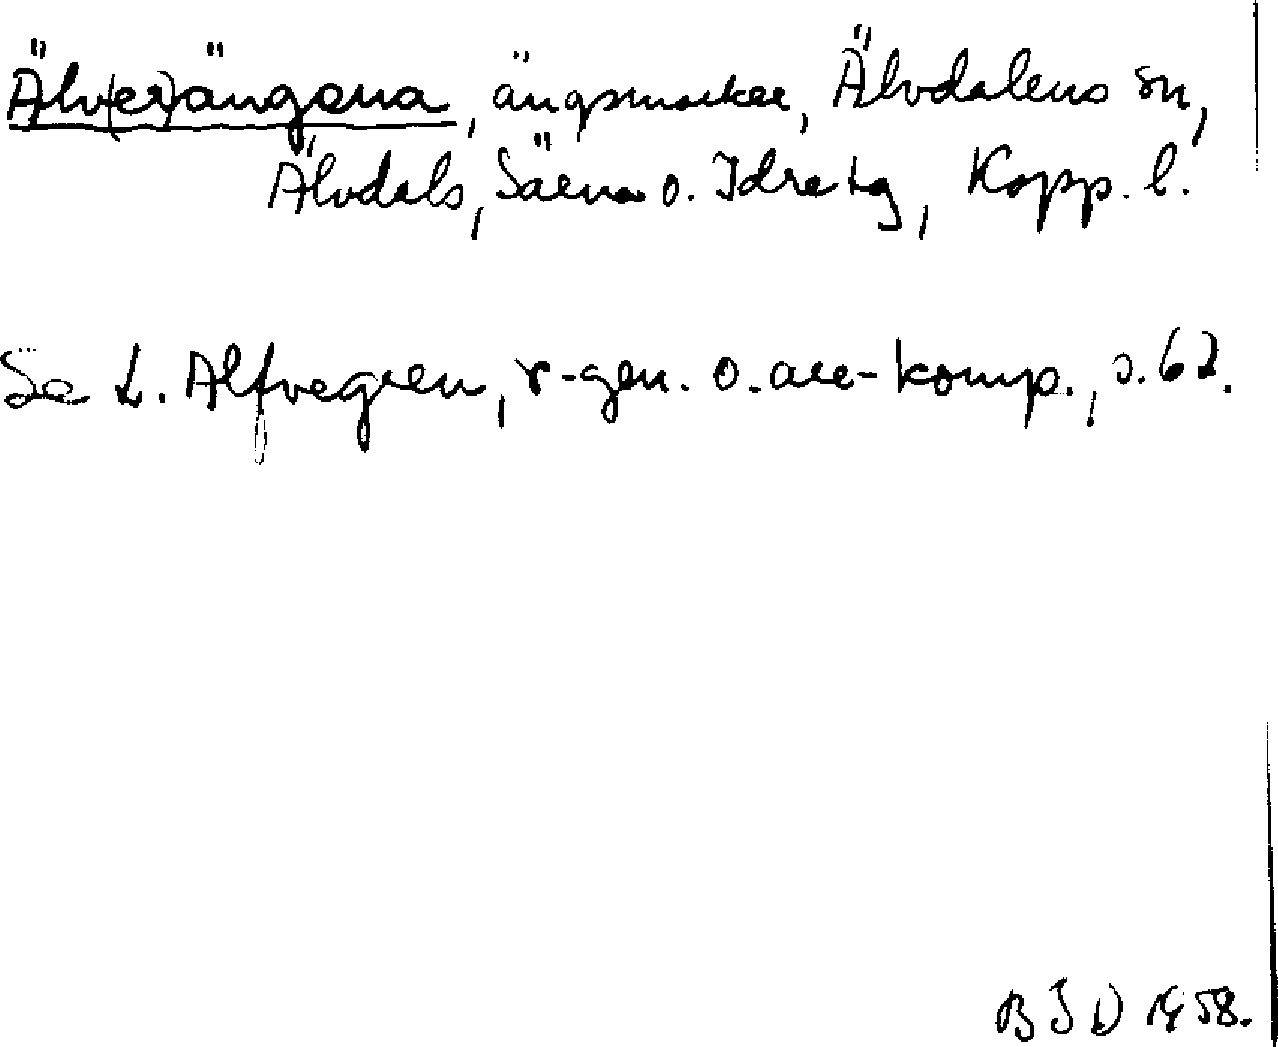 Älv(er)ängona, ängsmarker, Älvdalens sn,
Älvdals, Särna o. Idre tg, Kopp. l.
Se L. Alfvegren, r-gen. o. are-komp., s. 62.
B J D 1958.